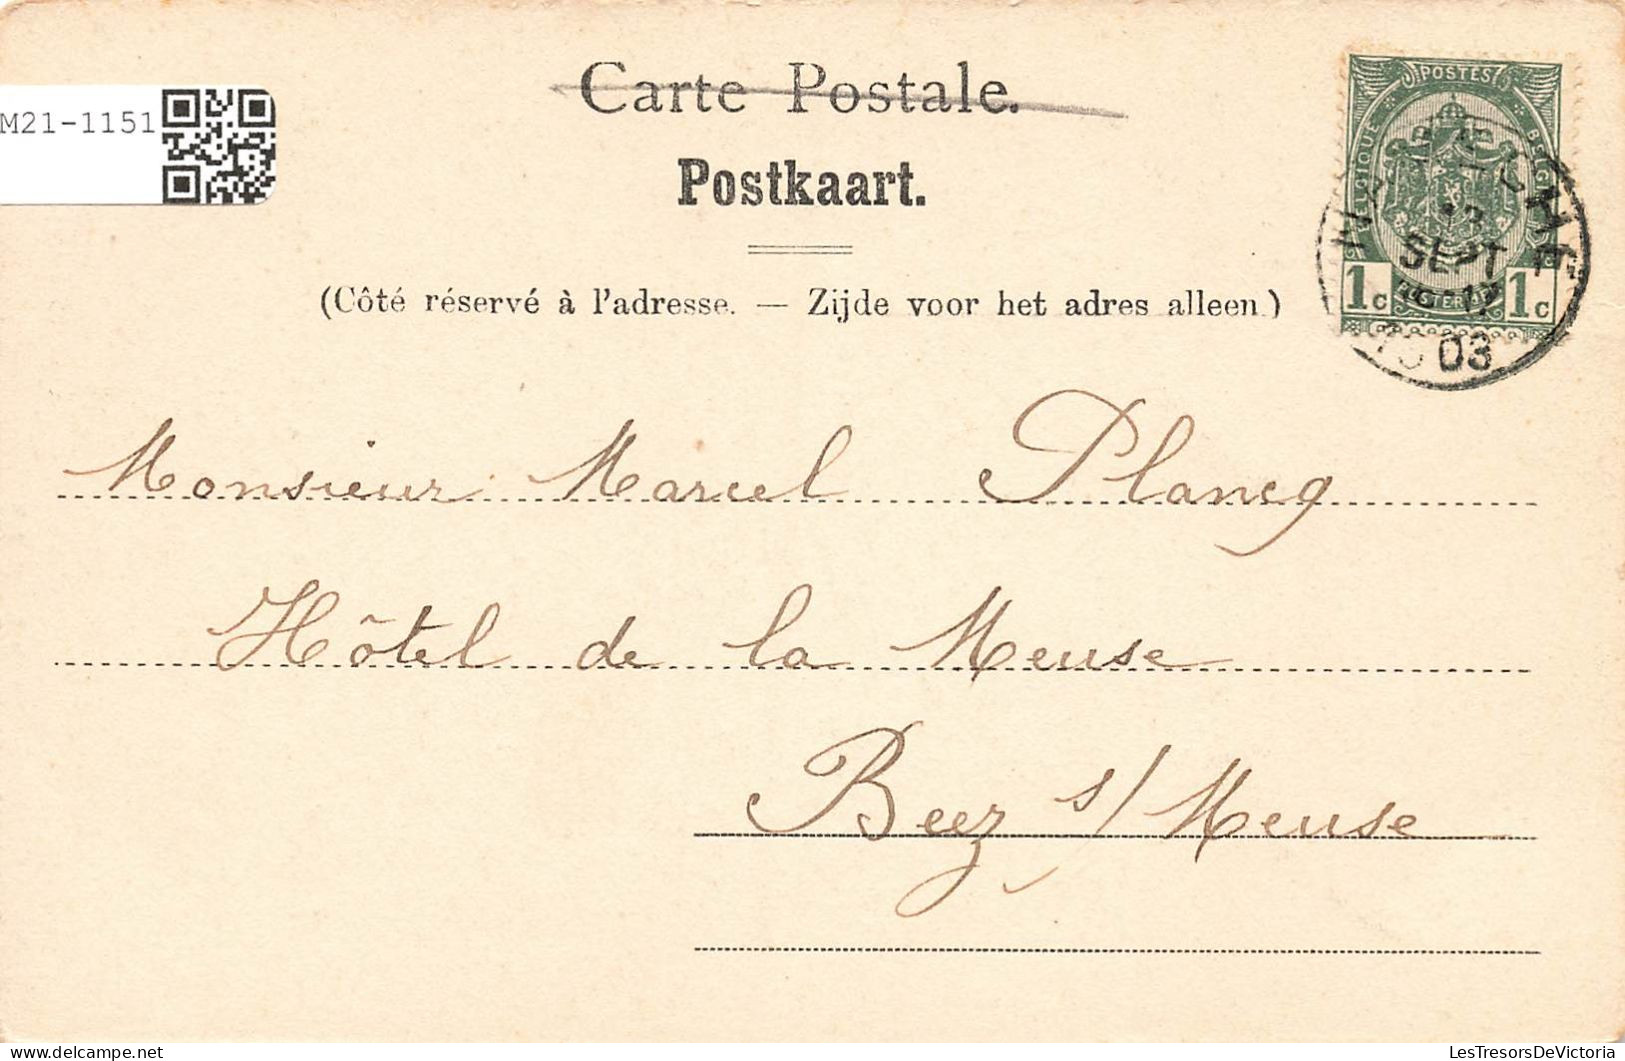 Carte Postale.
M21-1151
Postkaart.
POSTES
BELGIQUE
SEPT
1c 1c
03
(Côté réservé à l'adresse. — Zijde voor het adres alleen.)
Monsieur Marcel Plancq
Hôtel de la Meuse
Beez s/Meuse
LesTresorsDeVictoria